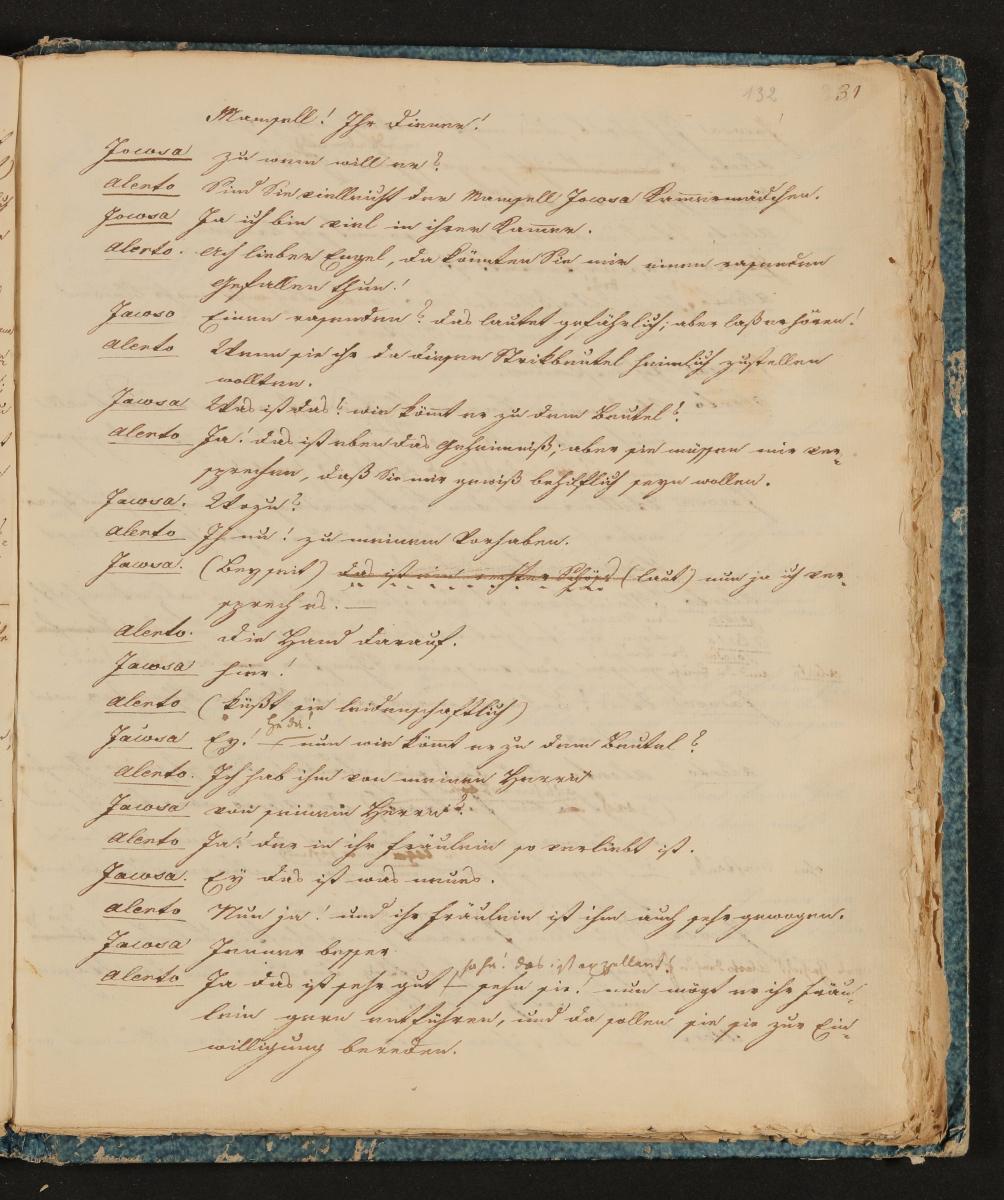 132 31
Mamsell! Ihr Diener!
Jocosa zu wem will er?
Alerto Sind Sie vielleicht der Mamsell Jocosa Kammermädchen.
Jocosa Ja ich bin viel in ihrer Kammer.
Alerto. Ach lieber Engel, da könnten Sie mir einen rasenden
Gefallen thun!
Jocosa Einen rasenden? das lautet gefährlich; aber laß er hören!
Alerto Wenn sie ihr da diesen Strikbeutel heimlich zustellen
wollten.
Jocosa Was ist das? wie kömt er zu dem Beutel?
Alerto Ja! das ist eben das Geheimniß; aber sie müssen mir ver-
sprechen, daß Sie mir gewiß behilflich seyn wollen.
Jocosa. Wozu?
Alerto Ih nu! zu meinem Vorhaben.
Jocosa. (Beyseit) das ist ein rechter Schöps (laut) nun ja ich ver-
sprech es. —
Alerto. die Hand darauf.
Jocosa hier!
Alerto (küßt sie leidenschaftlich)
He da!
Jocosa Ey! — nun wie kömt er zu dem Beutel?
Alerto. Ich hab ihn von meinen Herrn
Jocosa von seinem Herrn?
Alerto Ja! der in ihr Fräulein so verliebt ist.
Jocosa. Ey das ist was neues.
Alerto Nun ja! und ihr Fräulein ist ihm auch sehr gewogen.
Jocosa Immer besser
ha ha! das ist exzellent!
Alerto Ja das ist sehr gut — sehn sie! nun mögt er ihr Fräu-
lein gern entführen, und da sollen sie sie zur Ein-
willigung bereden.